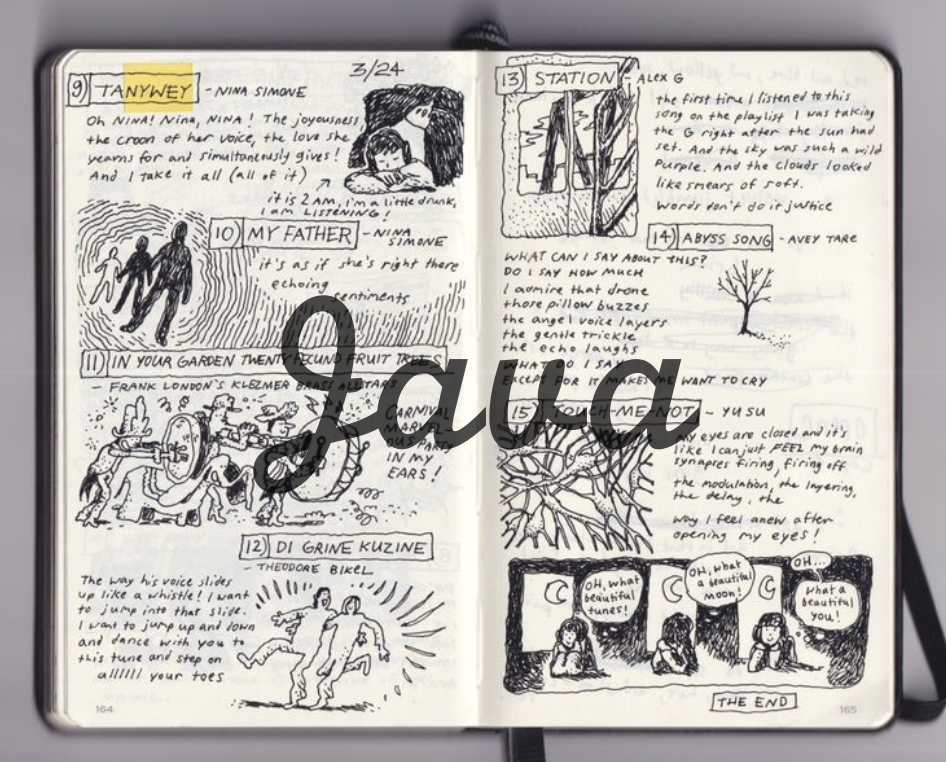 3/24
9) TANYWEY - NINA SIMONE
Oh NINA! Nina, NINA! The joyousness
the croon of her voice, the love she
yearns for and simultaneously gives!
And I take it all (all of it)
it is 2 AM, i'm a little drunk,
I am LISTENING!
10) MY FATHER - NINA
SIMONE
it's as if she's right there
echoing
sentiments
11) IN YOUR GARDEN TWENTY FECUND FRUIT TREES
- FRANK LONDON'S KLEZMER BRASS ALLSTARS
CARNIVAL
MARVEL-
OUS PARTY
IN MY
EARS!
12) DI GRINE KUZINE
- THEODORE BIKEL
The way his voice slides
up like a whistle! I want
to jump into that slide.
I want to jump up and down
and dance with you to
this tune and step on
allllll your toes
164
13) STATION - ALEX G
the first time I listened to this
song on the playlist I was taking
the G right after the sun had
set. And the sky was such a wild
Purple. And the clouds looked
like smears of soft.
Words don't do it justice
14) ABYSS SONG - AVEY TARE
WHAT CAN I SAY ABOUT THIS?
DO I SAY HOW MUCH
I admire that drone
those pillow buzzes
the angel voice layers
the gentle trickle
the echo laughs
WHAT DO I SAY
EXCEPT FOR IT MAKES ME WANT TO CRY
15) TOUCH-ME-NOT ~ YU SU
My eyes are closed and it's
like I can just FEEL my brain
synapses firing, firing off
the modulation, the layering,
the delay, the
way I feel anew after
opening my eyes!
OH, what
beautiful
tunes!
OH, what
a beautiful
moon!
OH...
what a
beautiful
you!
THE END
165
Java